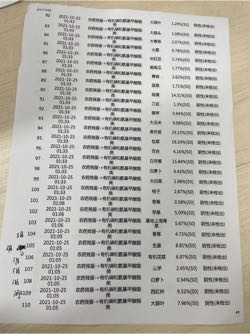 82 2021-10-25 01:43 农药残留->有机磷和氨基甲酸酯类 1.29%(50) 阴性(未检出)
83 2021-10-25 01:43 农药残留->有机磷和氨基甲酸酯类 1.08%(50) 阴性(未检出)
84 2021-10-25 农药残留->有机磷和氨基甲酸酯类 2.97%(50) 阴性(未检出)
85 2021-10-25 农药残留->有机磷和氨基甲酸酯类 阴性(未检出)
86 2021-10-25 01:33 农药残留->有机磷和氨基甲酸酯类 阴性(未检出)
87 2021-10-25 01:33 农药残留->有机磷和氨基甲酸酯类 1.77%(50) 阴性(未检出)
88 2021-10-25 01:33 农药残留->有机磷和氨基甲酸酯类 2.62%(50) 阴性(未检出)
89 2021-10-25 01:33 农药残留->有机磷和氨基甲酸酯类 菠菜 1.71%(50) 阴性(未检出)
90 2021-10-25 01:33 农药残留->有机磷和氨基甲酸酯类 14.31%(50) 阴性(未检出)
91 2021-10-25 01:33 农药残留->有机磷和氨基甲酸酯类 1.3%(50) 阴性(未检出)
92 2021-10-25 01:33 农药残留->有机磷和氨基甲酸酯类 阴性(未检出)
93 2021-10-25 01:33 农药残留->有机磷和氨基甲酸酯类 9.08%(50) 阴性(未检出)
94 2021-10-25 01:33 农药残留->有机磷和氨基甲酸酯类 23.13%(50) 阴性(未检出)
95 2021-10-25 01:33 农药残留->有机磷和氨基甲酸酯类 包菜 36.24%(50) 阴性(未检出)
96 2021-10-25 01:33 农药残留->有机磷和氨基甲酸酯类 百合 4.16%(50) 阴性(未检出)
97 2021-10-25 01:33 农药残留->有机磷和氨基甲酸酯类 白洋葱 15.84%(50) 阴性(未检出)
98 2021-10-25 01:33 农药残留->有机磷和氨基甲酸酯类 白萝卜 9.42%(50) 阴性(未检出)
99 2021-10-25 01:33 农药残留->有机磷和氨基甲酸酯类 大圆叶 1.26%(50) 阴性(未检出)
100 2021-10-25 01:33 农药残留->有机磷和氨基甲酸酯类 柚子 2.87%(50) 阴性(未检出)
101 2021-10-25 01:06 农药残留->有机磷和氨基甲酸酯类 香梅 0.18%(50) 阴性(未检出)
102 2021-10-25 01:06 农药残留->有机磷和氨基甲酸酯类 苹果 5.09%(50) 阴性(未检出)
103 2021-10-25 01:06 农药残留->有机磷和氨基甲酸酯类 5.67%(50) 阴性(未检出)
104 2021-10-25 01:06 农药残留->有机磷和氨基甲酸酯类 4.73%(50) 阴性(未检出)
105 2021-10-25 01:06 农药残留->有机磷和氨基甲酸酯类 生姜 8.81%(50) 阴性(未检出)
106 2021-10-25 01:06 农药残留->有机磷和氨基甲酸酯类 有机花菜 6.97%(50) 阴性(未检出)
107 2021-10-25 01:06 农药残留->有机磷和氨基甲酸酯类 山芋 2.45%(50) 阴性(未检出)
108 2021-10-25 01:06 农药残留->有机磷和氨基甲酸酯类 白萝卜 0.54%(50) 阴性(未检出)
109 2021-10-25 01:06 农药残留->有机磷和氨基甲酸酯类 西红柿 9.32%(50) 阴性(未检出)
110 2021-10-25 01:06 农药残留->有机磷和氨基甲酸酯类 大圆叶 7.96%(50) 阴性(未检出)